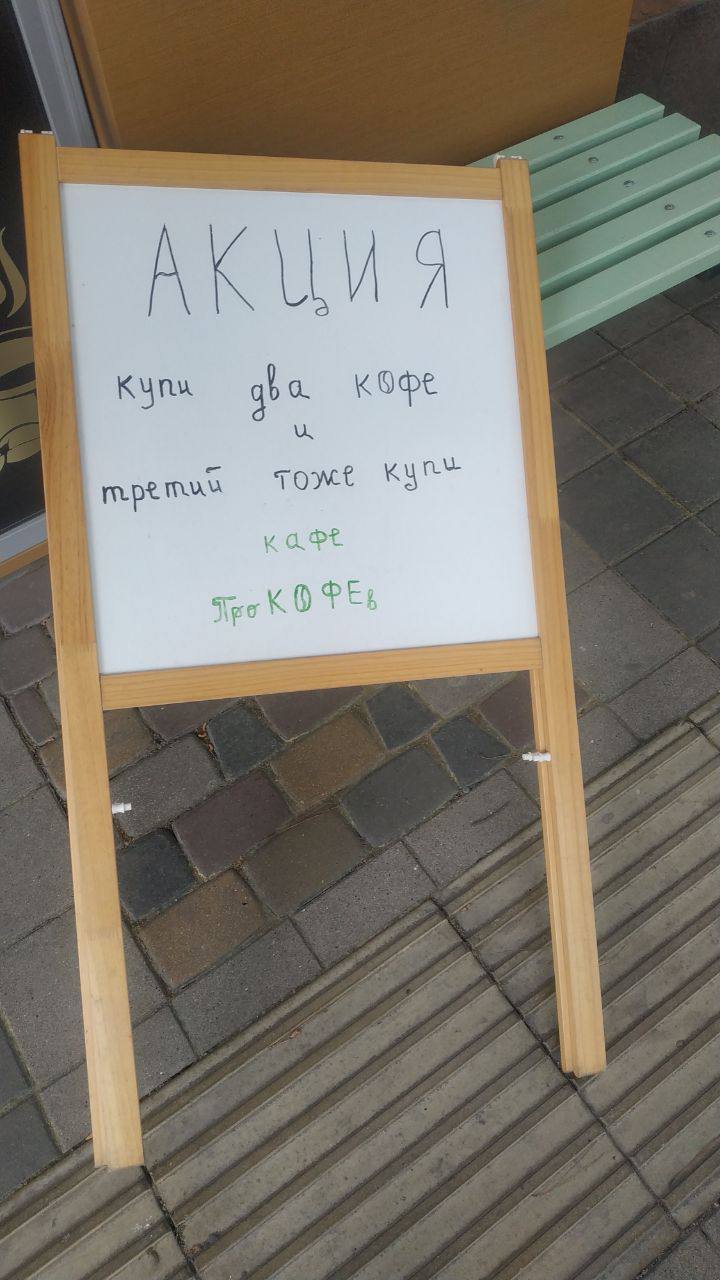 АКЦИЯ
купи два кофе
и
третий тоже купи
кафе
ПроКОФЕв